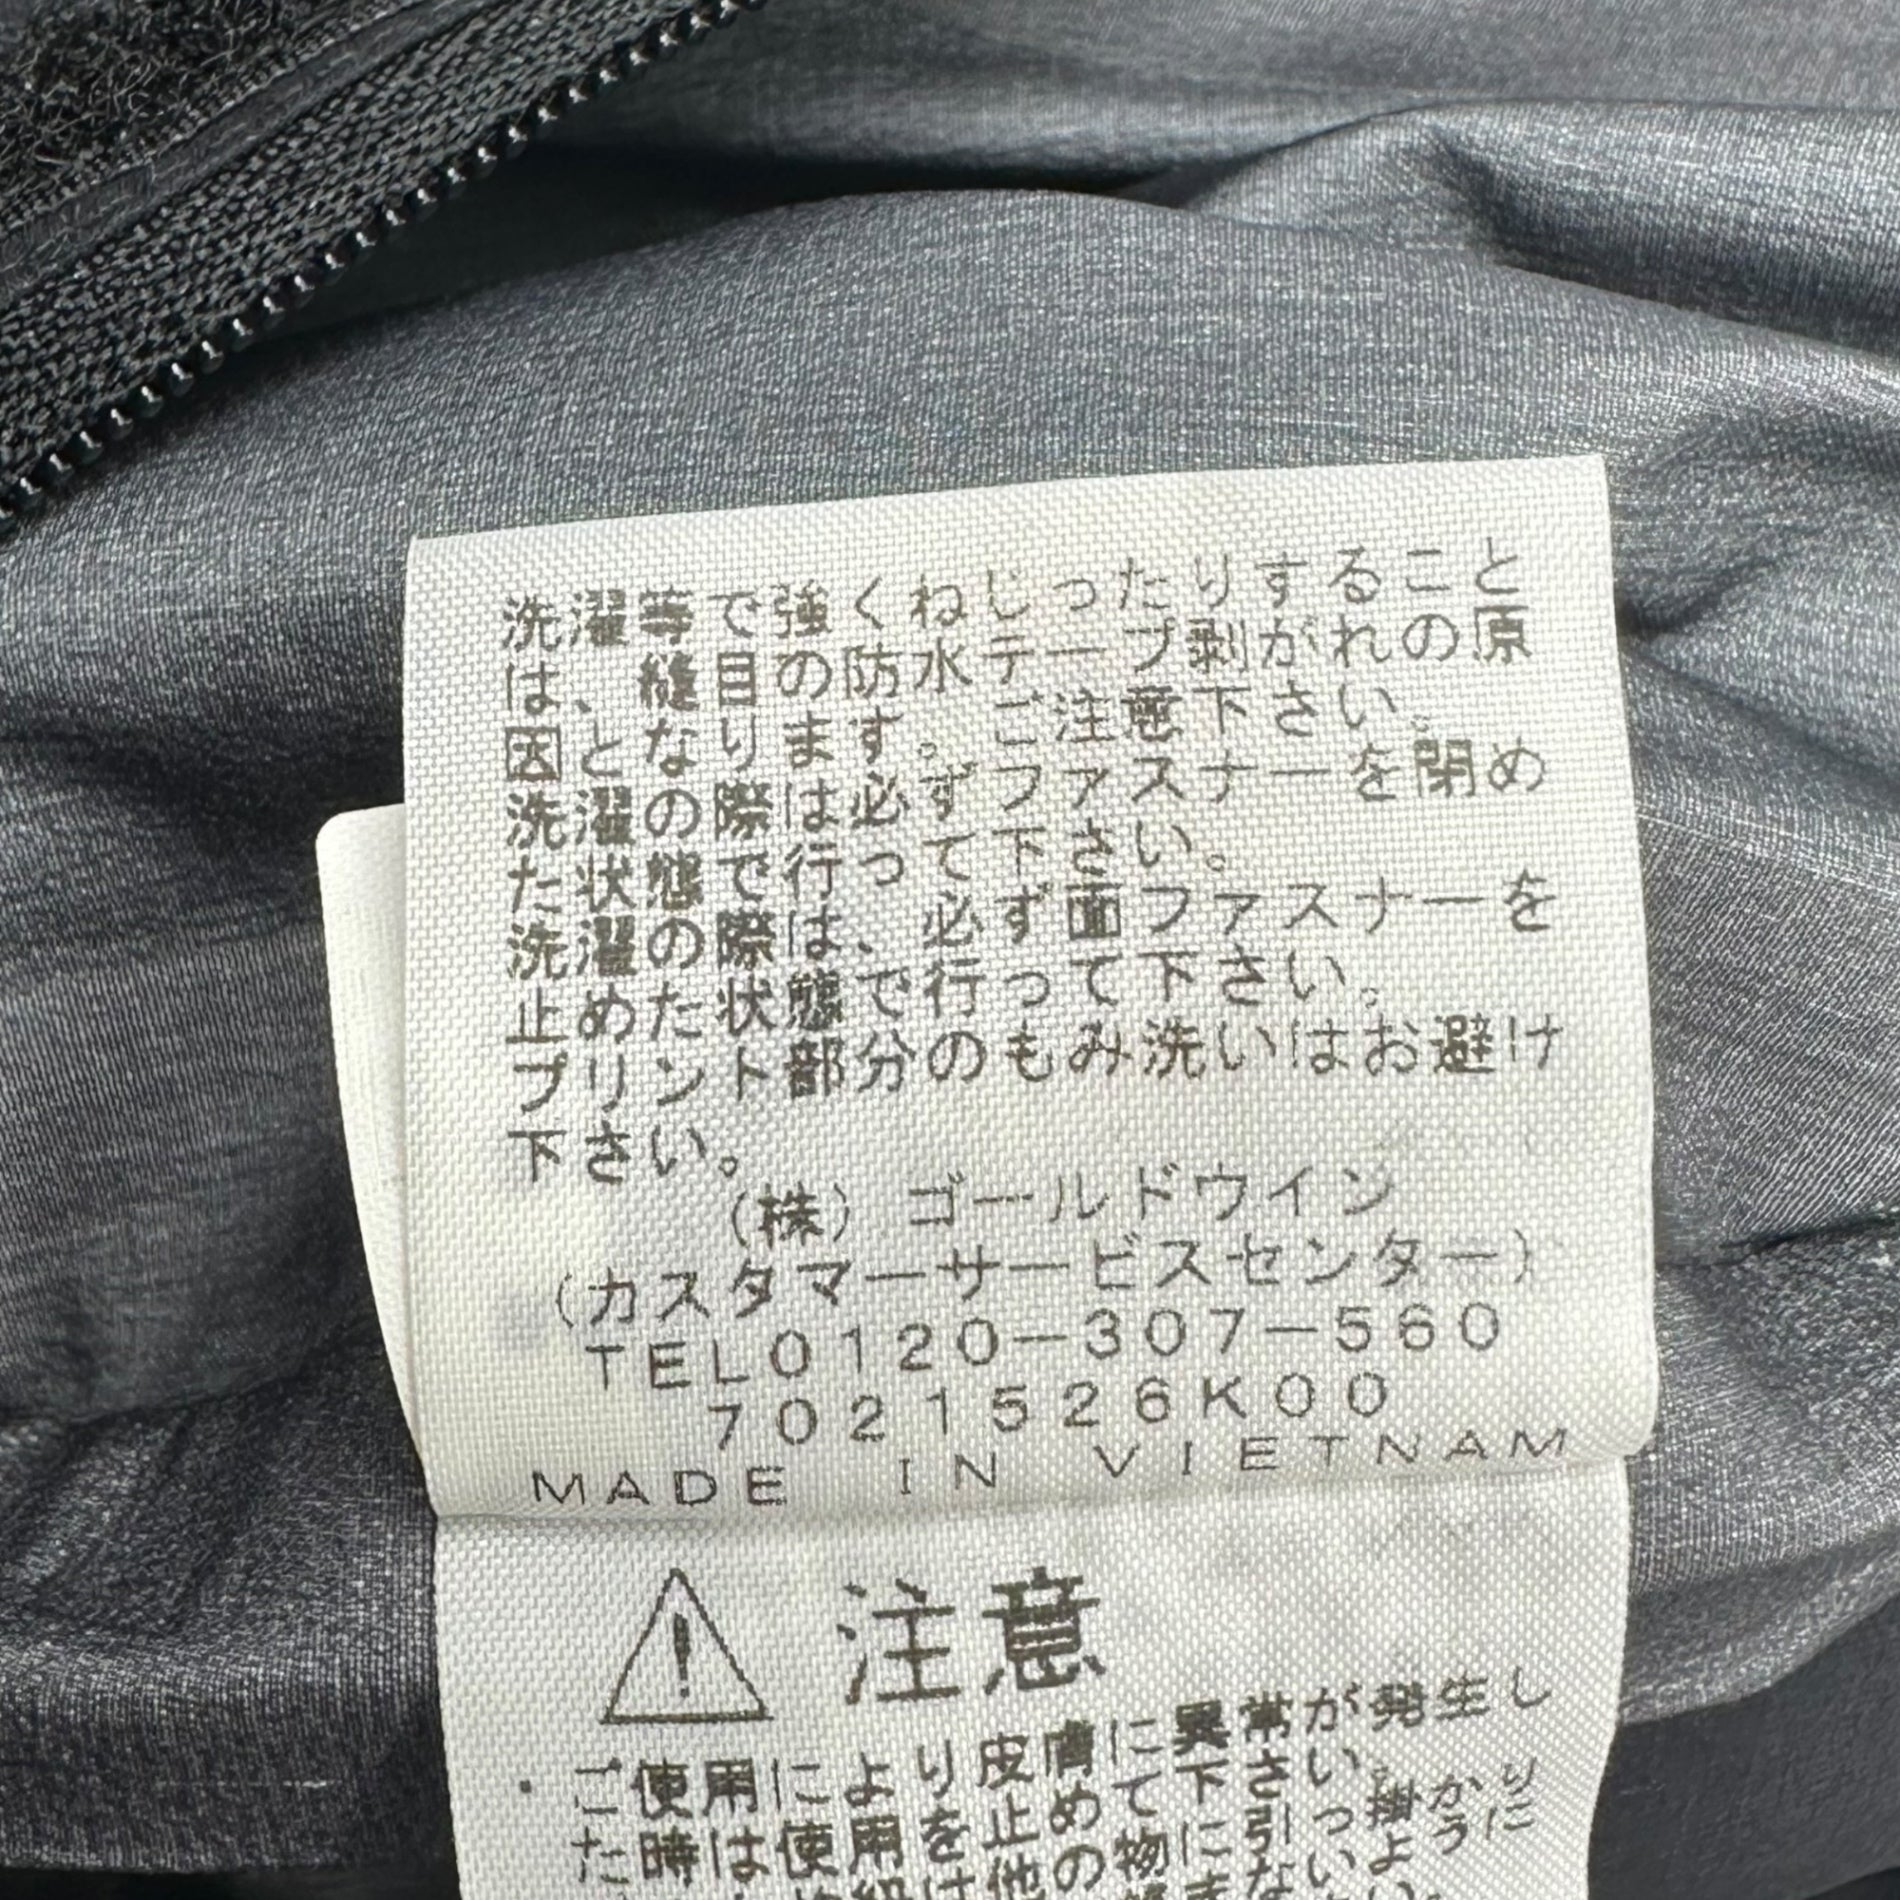 洗濯等で強くねじったりすること
は、縫目の防水テープ剥がれの原
因となります。ご注意下さい。
洗濯の際は必ずファスナーを閉め
た状態で行って下さい。
洗濯の際は、必ず面ファスナーを
止めた状態で行って下さい。
プリント部分のもみ洗いはお避け
下さい。
(株) ゴールドウイン
(カスタマーサービスセンター)
TEL0120-307-560
7021526K00
MADE IN VIETNAM
注意
・ご使用により皮膚に異常が発生し
た時は使用を止めて下さい。
他の物に引っ掛かり